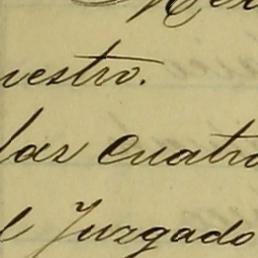 uestro.
las cuatro
l Juzgado